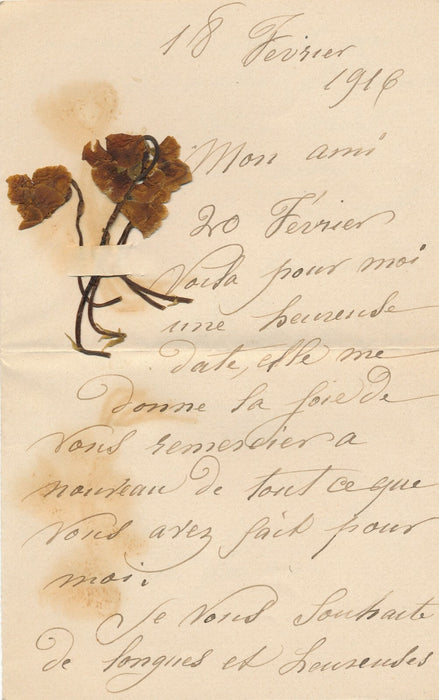 18 Fevrier
1916
Mon ami
20 Février
Voila pour moi
une heureuse
date, elle me
donne la joie de
vous remercier a
nouveau de tout ce que
vous avez fait pour
moi.
Je vous souhaite
de longues et heureuses